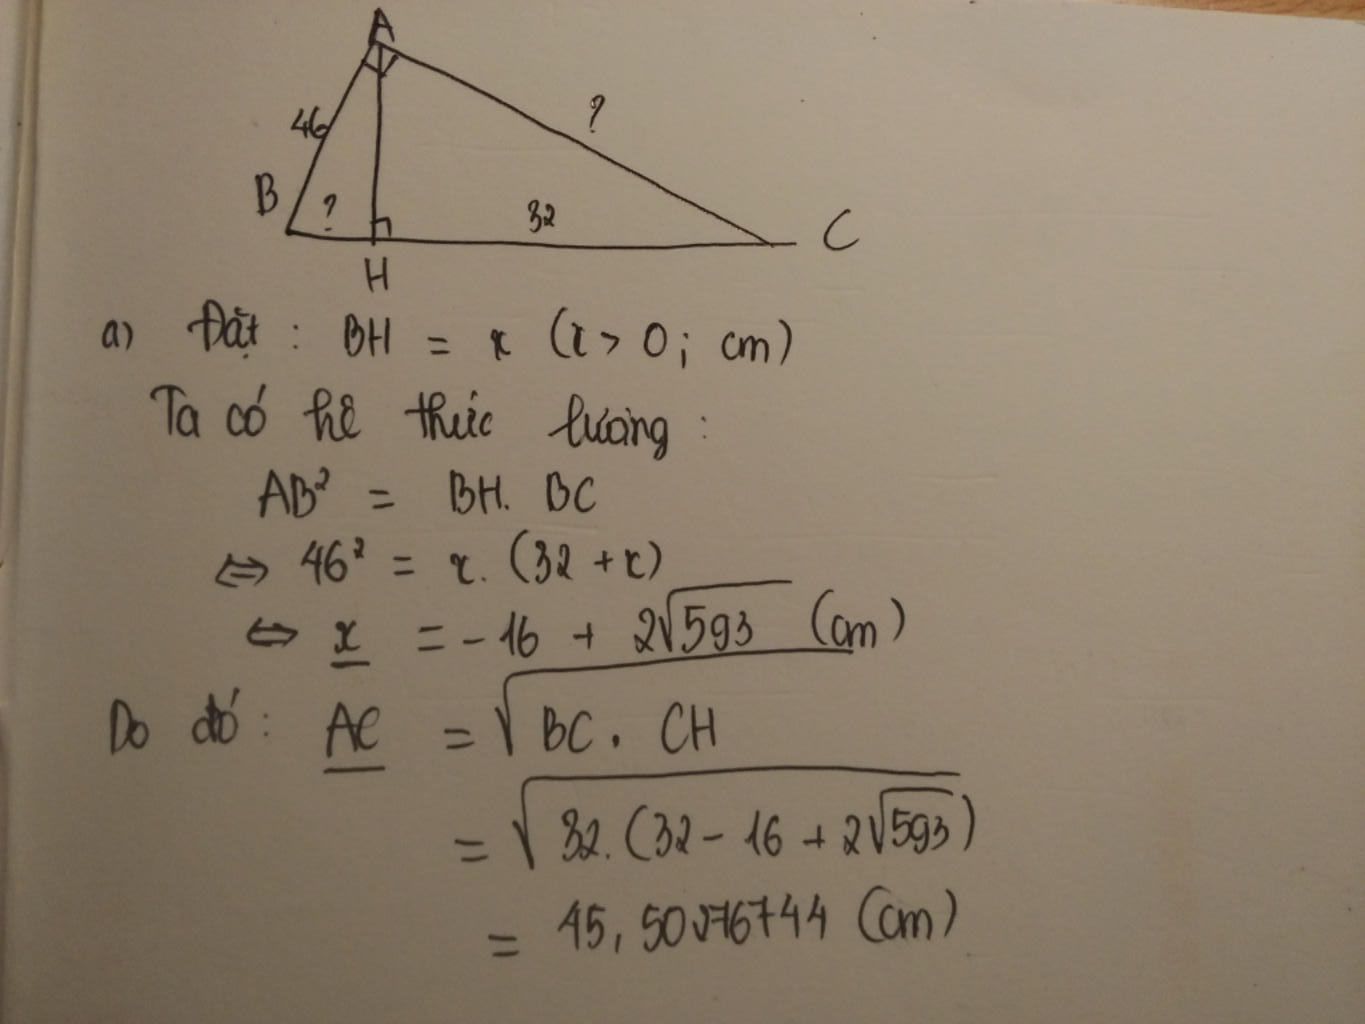 A
46
?
B
?
32
C
H
a) Đặt : BH = x (x > 0 ; cm)
Ta có hê thức lương :
AB² = BH. BC
⇔ 46² = x. (32 + x)
⇔ x = - 16 + 2√593 (cm)
Do đó : AC = √BC . CH
= √32. (32 - 16 + 2√593)
= 45, 50276744 (cm)